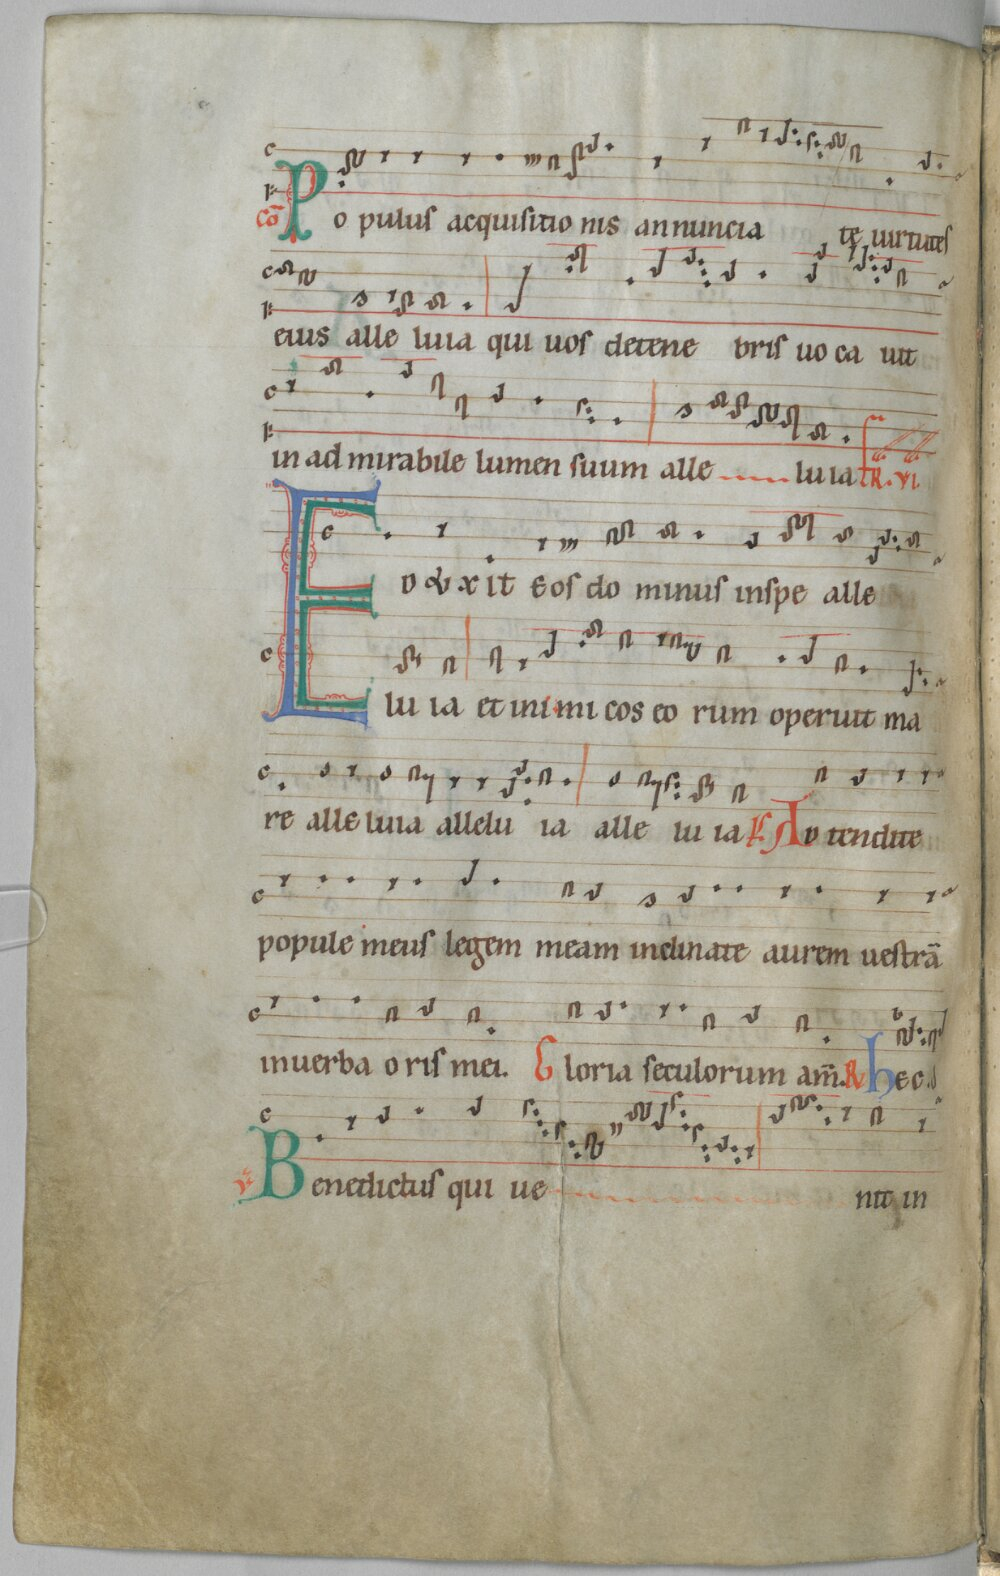 Cō Po pulus acquisitio nis annuncia te uirtutes
eius alle luia qui uos detene bris uo ca uit
in ad mirabile lumen suum alle lu ia FR. VI
EDuxit eos do minus inspe alle
lu ia et inimi cos eo rum operuit ma
re alle luia allelu ia alle lu ia Ps AD tendite
popule meus legem meam inclinate aurem uestrā
inuerba oris mei. Gloria seculorum am̄. R hec.
V Benedictus qui ue nit in